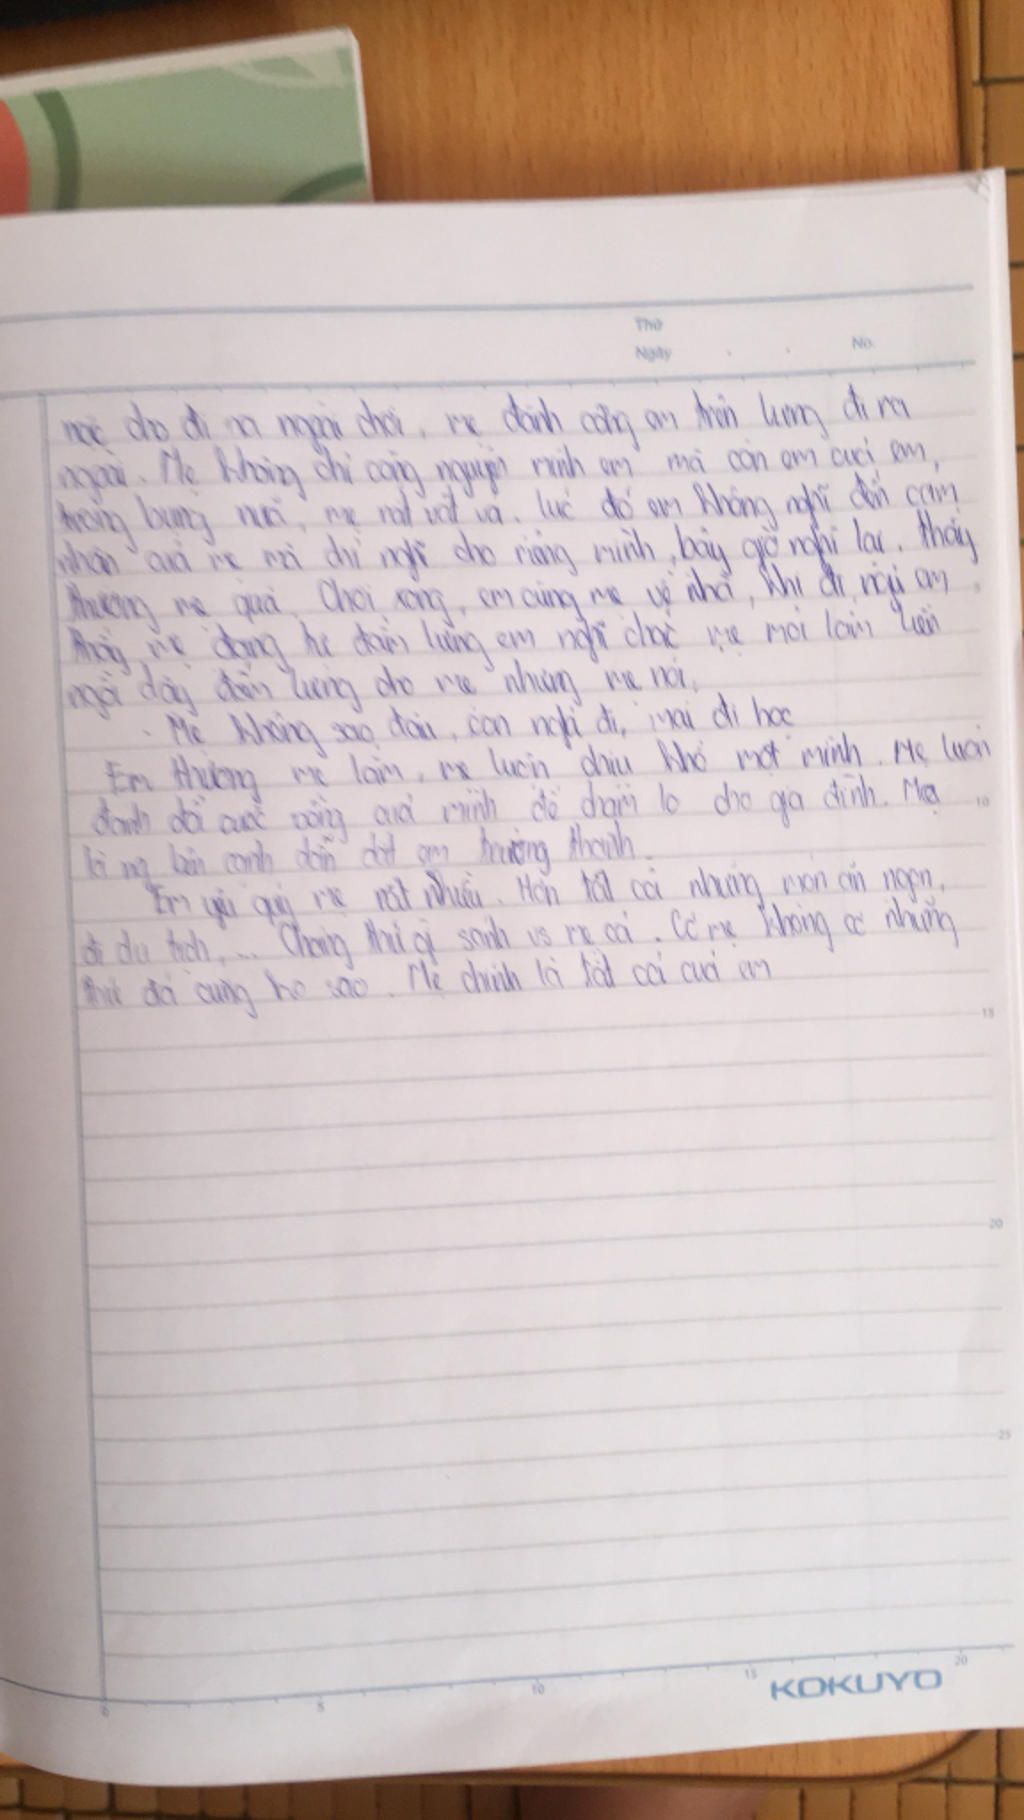 Thứ
Ngày . . No.
cho đi ra ngoài chơi, mẹ đành cõng em trên lưng đi ra
ngoài. Mẹ không chỉ cõng nguyên mình em mà còn em của em,
trong bụng nữa, mẹ rất vất vả. lúc đó em không nghĩ đến cảm
nhận của mẹ mà chỉ nghĩ cho riêng mình, bây giờ nghĩ lại, thấy
thương mẹ quá. Chơi xong, em cùng mẹ về nhà, khi đi ngủ em
thấy mẹ đang đấm lưng em nghĩ chắc mẹ mỏi lắm liền
ngồi dậy đấm lưng cho mẹ nhưng mẹ nói,
- Mẹ không sao đâu, con nghỉ đi, mai đi học
Em thương mẹ lắm, mẹ luôn chịu khó một mình. Mẹ luôn
đánh đổi cuộc sống của mình để chăm lo cho gia đình. Mẹ
10
là ng bên cạnh dẫn dắt em trưởng thành.
Em yêu quý mẹ rất nhiều. Hơn tất cả những món ăn ngon,
đi du lịch,... Chẳng thứ gì sánh vs mẹ cả. Có mẹ không có những
thứ đó cũng ko sao. Mẹ chính là tất cả của em
15
20
25
0 5 10 15 20
KOKUYO